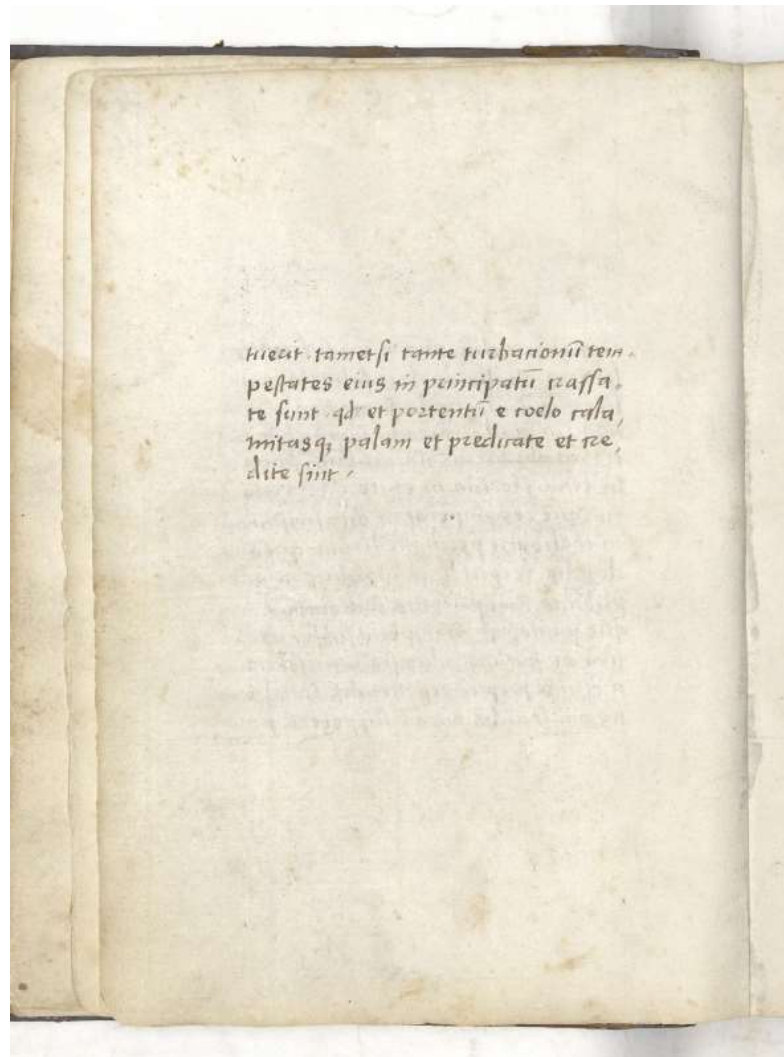 tuerit tametsi tante turbacionū tem-
pestates eius in principatū crassa-
te sunt qd et portentū e coelo cala,
mitasq; palam et predicate et cre,
dite sint -